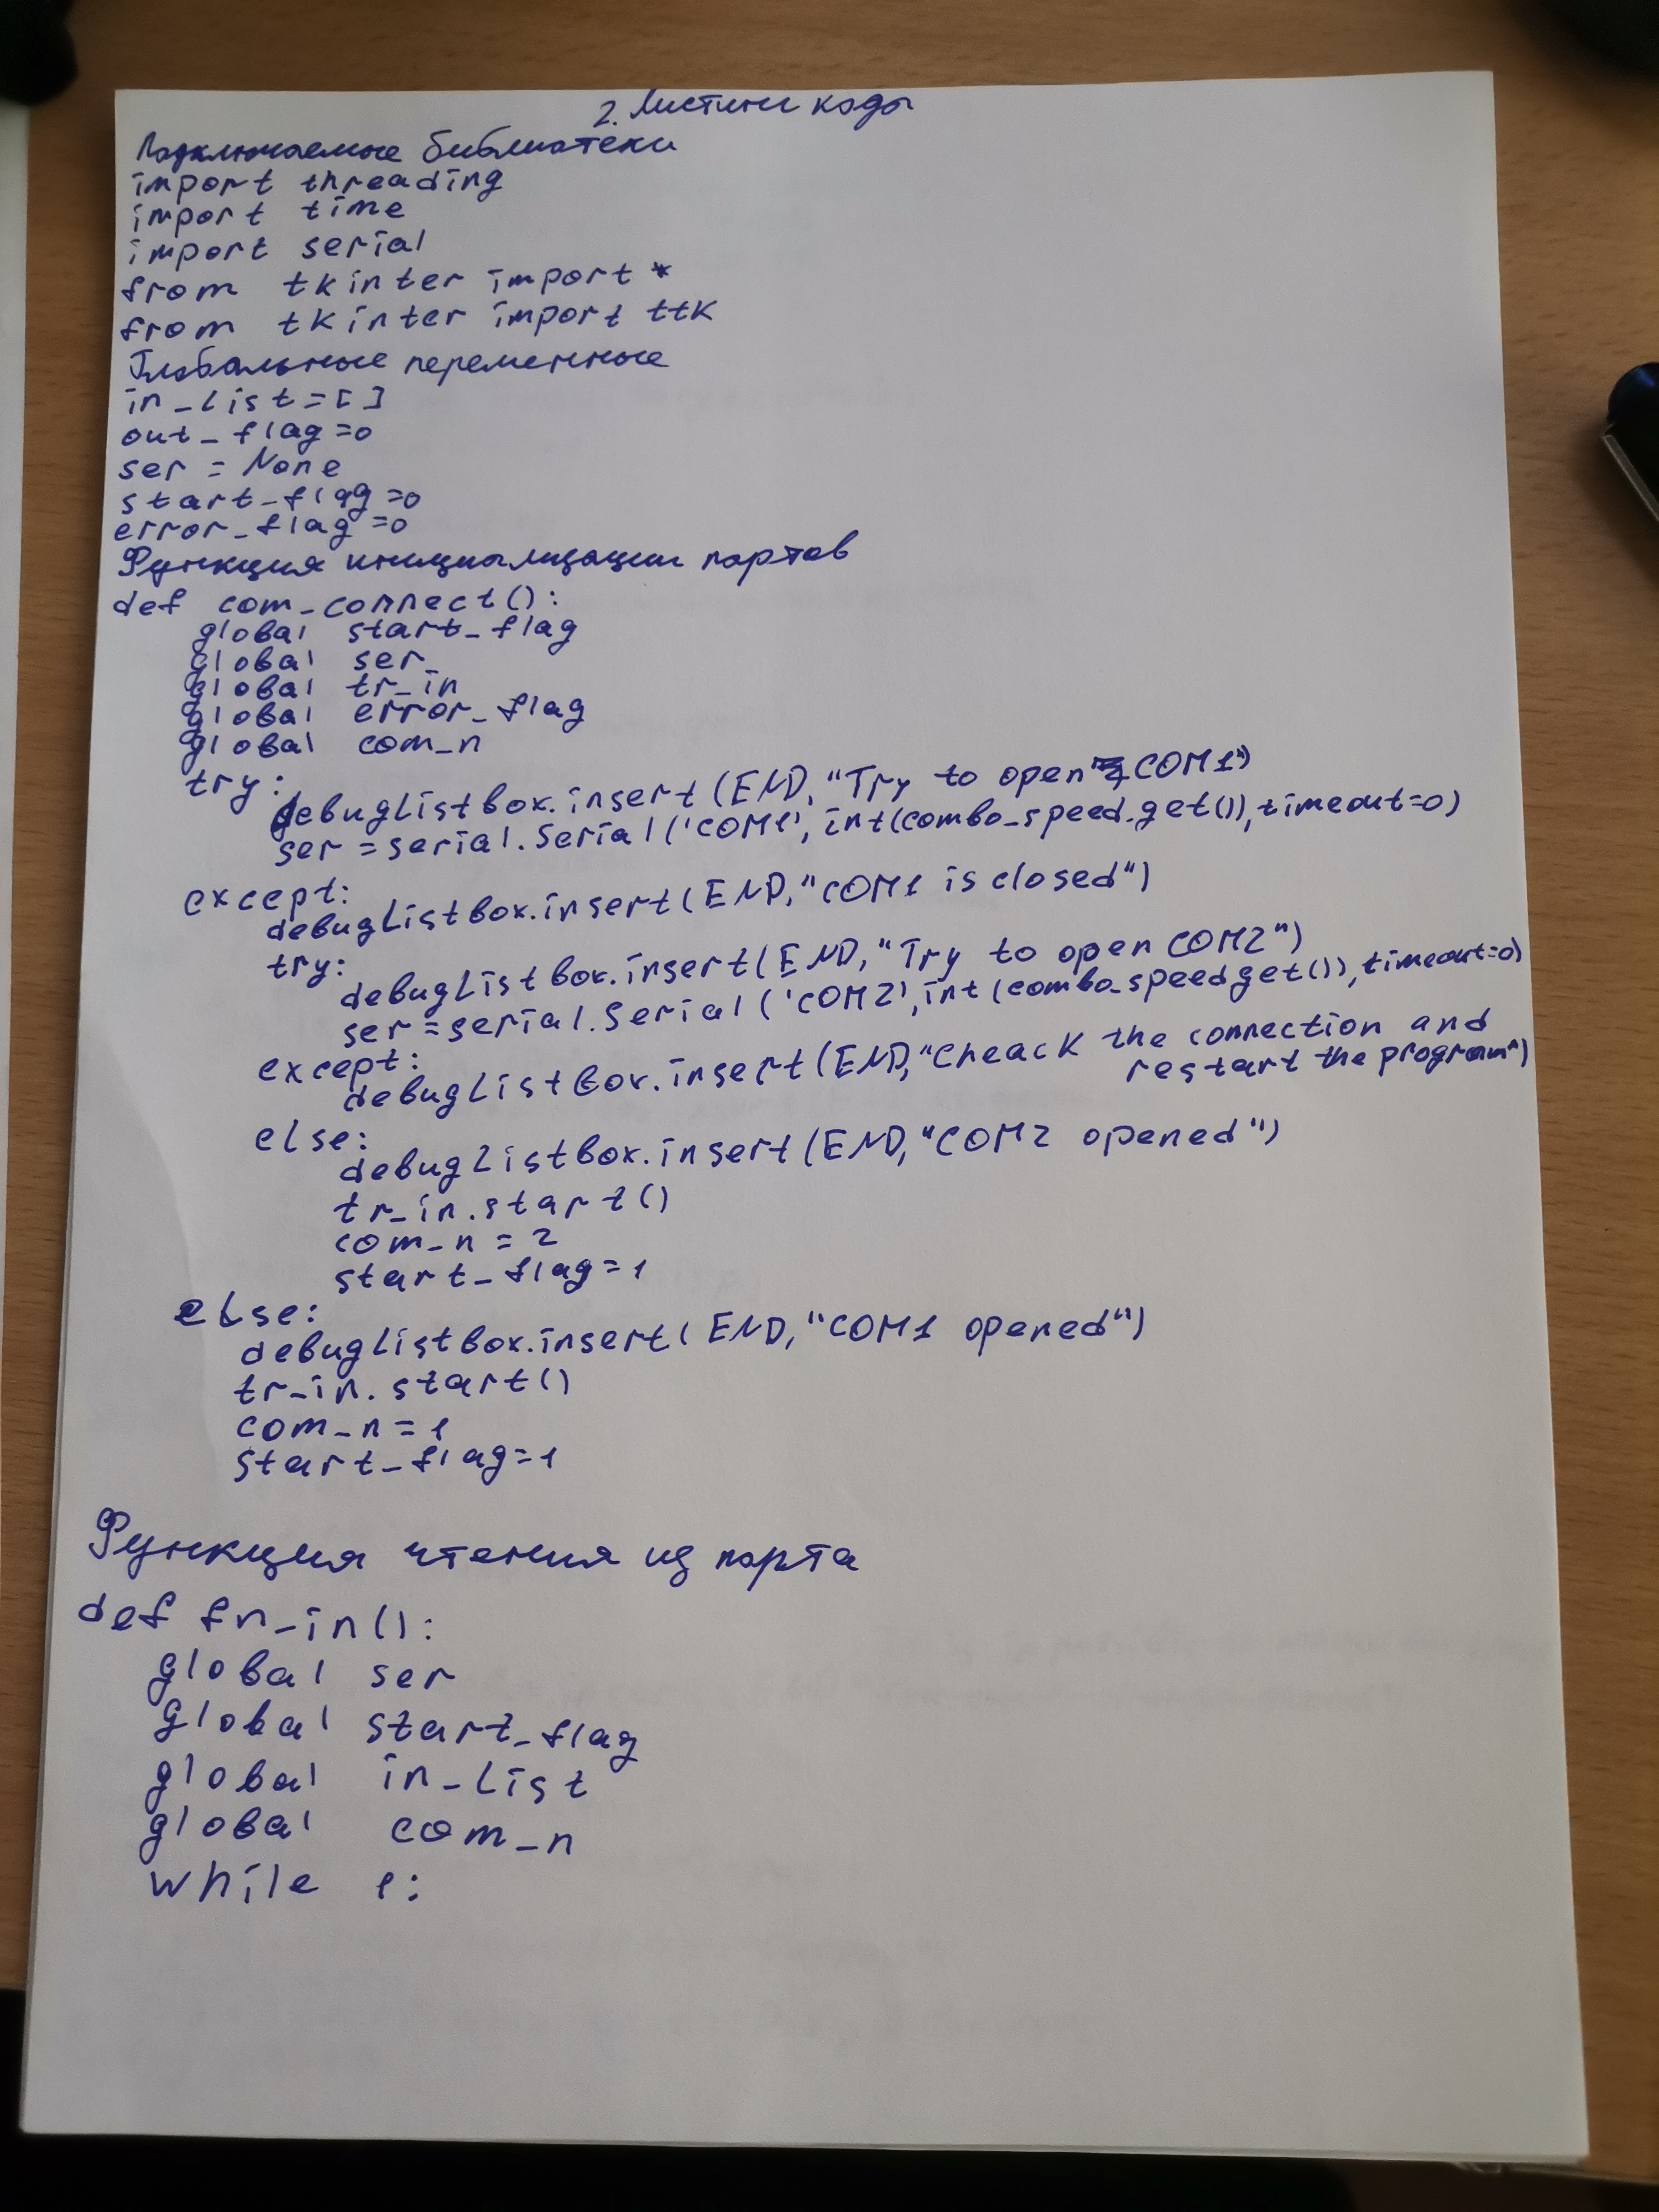 2. Листинг кода
Подключаемые библиотеки
import threading
import time
import serial
from tkinter import *
from tkinter import ttk
Глобальные переменные
in_list=[]
out_flag=0
ser = None
start_flag=0
error_flag=0
Функция инициализации портов
def com_connect():
global start_flag
global ser
global tr_in
global error_flag
global com_n
try:
debuglistbox.insert(END,"Try to open COM1")
ser = serial.Serial('COM1', int(combo_speed.get()), timeout=0)
except:
debuglistbox.insert(END,"COM1 is closed")
try:
debuglistbox.insert(END,"Try to open COM2")
ser = serial.Serial('COM2', int(combo_speed.get()), timeout=0)
except:
debuglistbox.insert(END,"Cheack the connection and
restart the program")
else:
debuglistbox.insert(END,"COM2 opened")
tr_in.start()
com_n = 2
start_flag=1
else:
debuglistbox.insert(END,"COM1 opened")
tr_in.start()
com_n = 1
start_flag=1
Функция чтения из порта
def fn_in():
global ser
global start_flag
global in_list
global com_n
while 1: